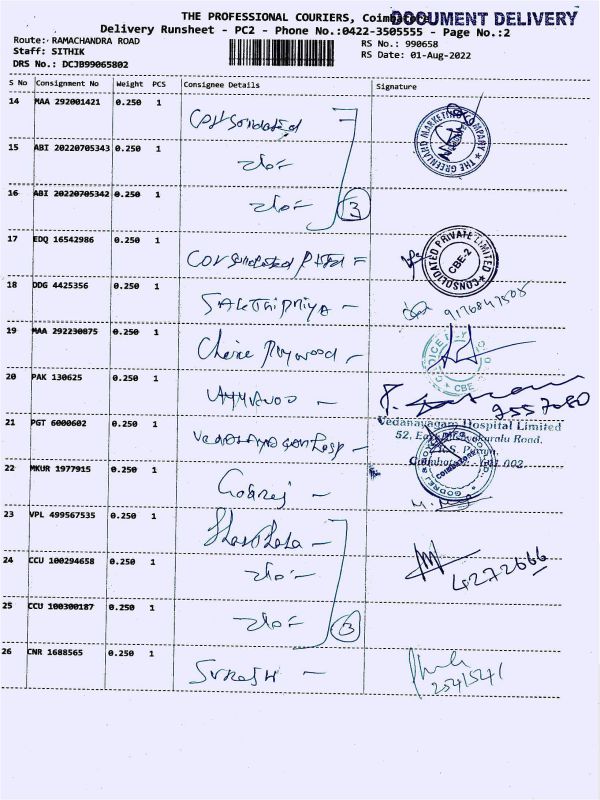 THE PROFESSIONAL COURIERS, Coimbatore
DOCUMENT DELIVERY
Delivery Runsheet - PC2 - Phone No.:0422-3505555 - Page No.:2
Route: RAMACHANDRA ROAD
RS No.: 990658
Staff: SITHIK
RS Date: 01-Aug-2022
DRS No.: DCJB99065802
S No Consignment No Weight PCS Consignee Details Signature
14 MAA 292001421 0.250 1 Consolidated
THE GREENLAND MARKETING COMPANY
15 ABI 20220705343 0.250 1
16 ABI 20220705342 0.250 1 3
17 EDQ 16542986 0.250 1 Consolidated
CONSOLIDATED PRIVATE LIMITED CBE-2
18 DDG 4425356 0.250 1 9176847505
19 MAA 292230875 0.250 1 Choice Plywood -
CBE
20 PAK 130625 0.250 1
9557080
21 PGT 6000602 0.250 1
Vedanayagam Hospital Limited
52, East
Road,
R.S. Puram,
002
22 MKUR 1977915 0.250 1 Godrej -
GODREJ
23 VPL 499567535 0.250 1
24 CCU 100294658 0.250 1
4272666
25 CCU 100300187 0.250 1 3
26 CNR 1688565 0.250 1 Suresh -
2545241